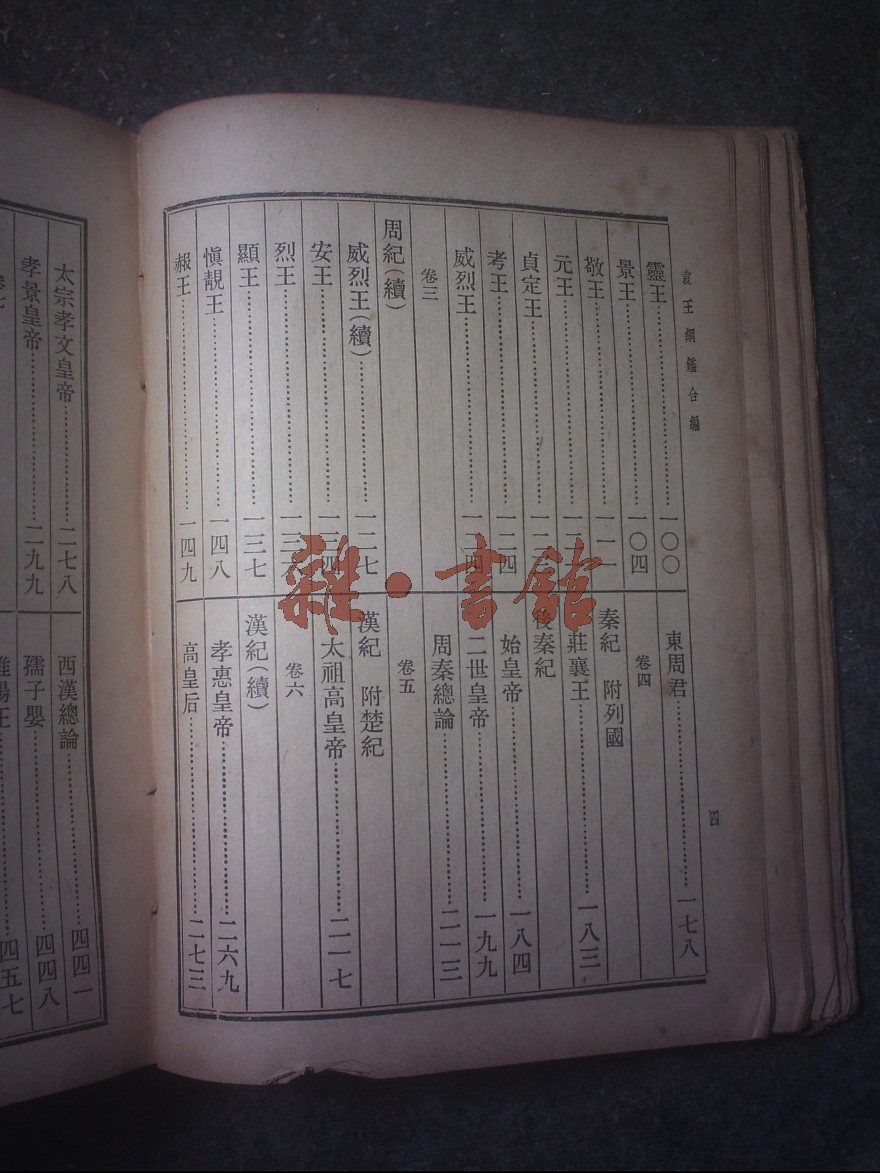 袁王綱鑑合編
四
靈王……一〇〇
景王……一〇四
敬王……一一一
元王……一二
貞定王……一二
考王……一二四
威烈王……一二四
卷三
周紀(續)
威烈王(續)……一二七
安王……一三四
烈王……一三六
顯王……一三七
慎靚王……一四八
赧王……一四九
東周君……一七八
卷四
秦紀 附列國
莊襄王……一八三
後秦紀
始皇帝……一八四
二世皇帝……一九九
周秦總論……二一三
卷五
漢紀 附楚紀
太祖高皇帝……二一七
卷六
漢紀(續)
孝惠皇帝……二六九
高皇后……二七三
太宗孝文皇帝……二七八
孝景皇帝……二九九
西漢總論……四四一
孺子嬰……四四八
淮陽王……四五七
雜·書館